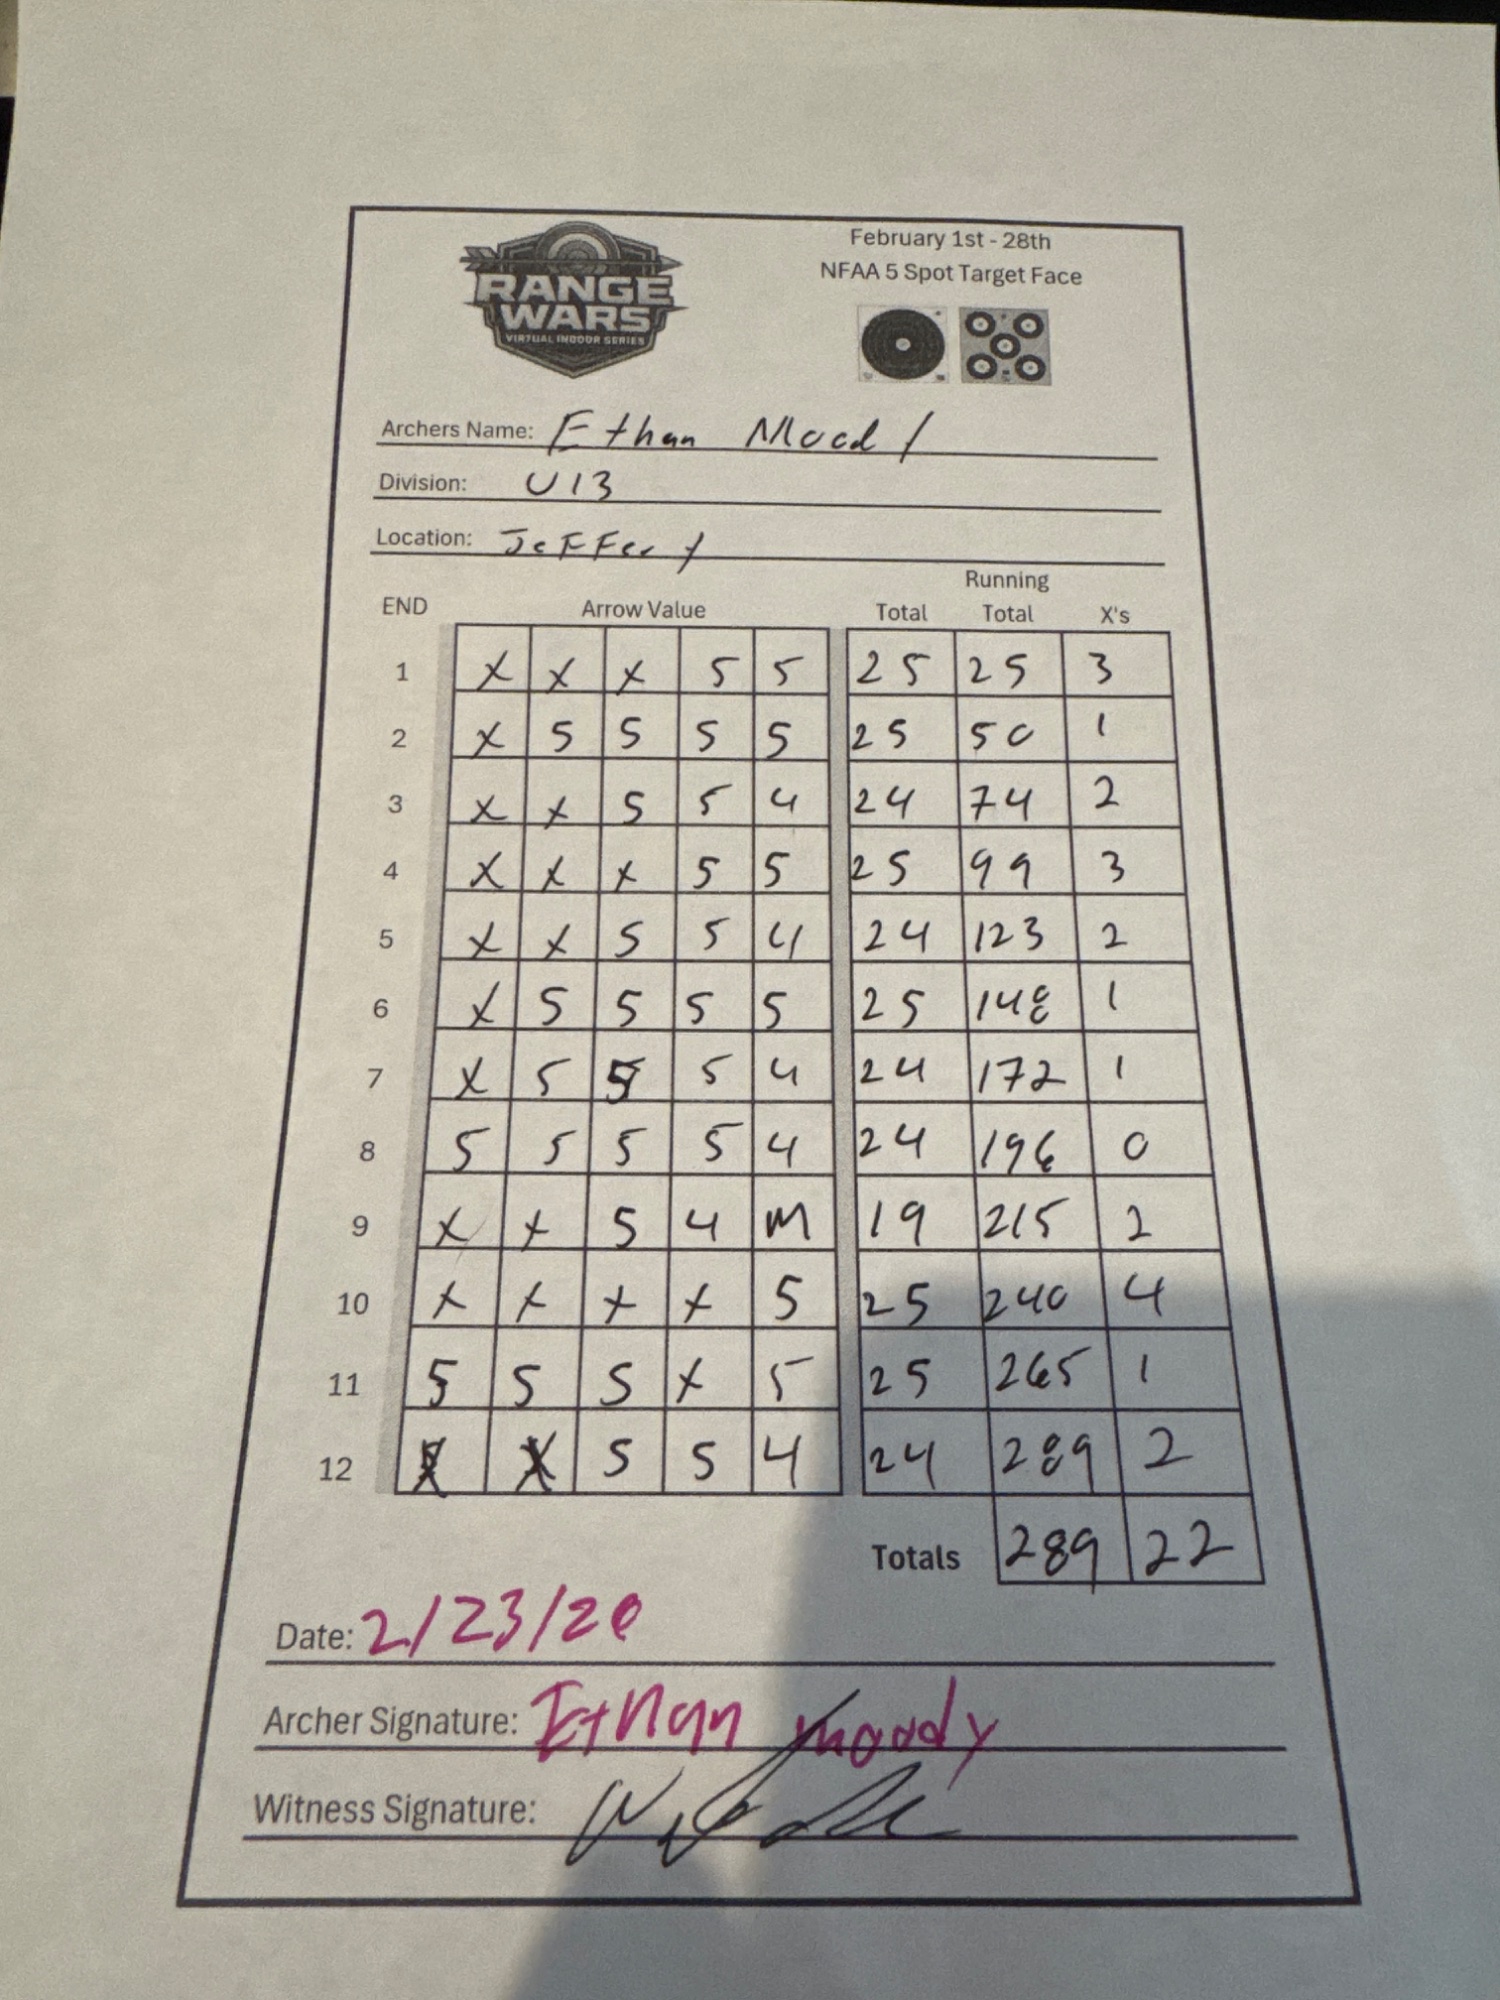 RANGE
WARS
VIRTUAL INDOOR SERIES
February 1st - 28th
NFAA 5 Spot Target Face
Archers Name: Ethan Moody
Division: U13
Location: JeFFery
END Arrow Value Total Running Total X's
1 X X X 5 5 25 25 3
2 X 5 5 5 5 25 50 1
3 X X 5 5 4 24 74 2
4 X X X 5 5 25 99 3
5 X X 5 5 4 24 123 2
6 X 5 5 5 5 25 148 1
7 X 5 5 5 4 24 172 1
8 5 5 5 5 4 24 196 0
9 X X 5 4 M 19 215 2
10 X X X X 5 25 240 4
11 5 5 5 X 5 25 265 1
12 X X 5 5 4 24 289 2
Totals 289 22
Date: 2/23/26
Archer Signature: Ethan moody
Witness Signature: